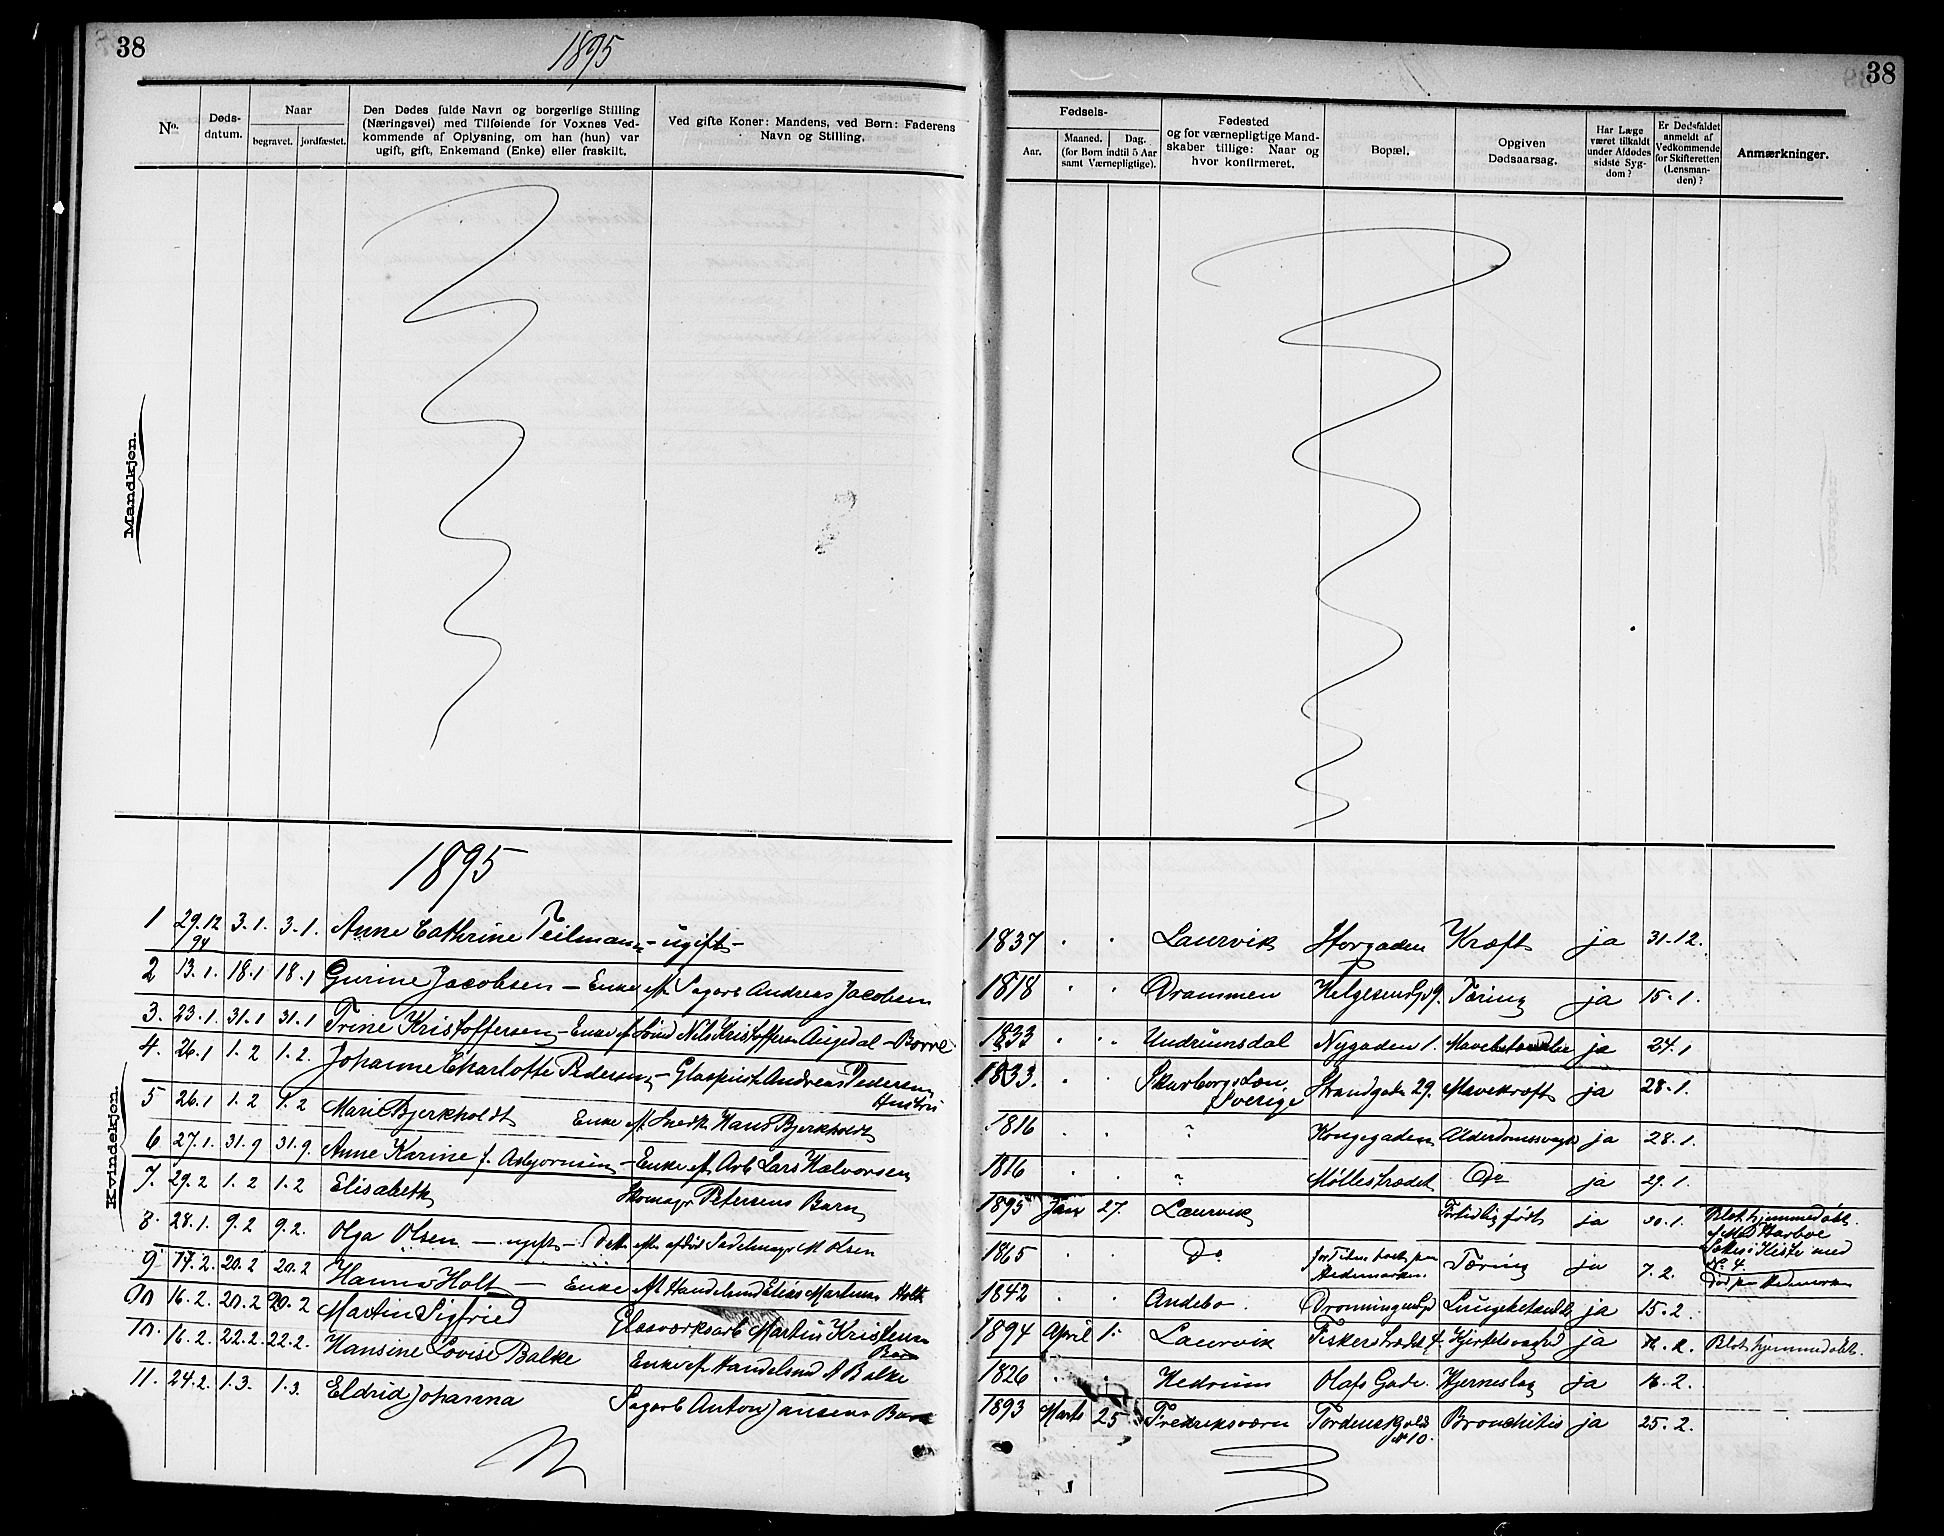 38
1895
38
No.
Døds-
datum.
Naar
begravet.
jordfæstet.
Den Dødes fulde Navn og borgerlige Stilling
(Næringsvei) med Tilføiende for Voxnes Ved-
kommende af Oplysning, om han (hun) var
ugift, gift, Enkemand (Enke) eller fraskilt.
Ved gifte Koner: Mandens, ved Børn: Faderens
Navn og Stilling.
Fødsels-
Aar.
Maaned. Dag.
(for Børn indtil 5 Aar
samt Værnepligtige).
Fødested
og for værnepligtige Mand-
skaber tillige: Naar og
hvor konfirmeret.
Bopæl.
Opgiven
Dødsaarsag.
Har Læge
været tilkaldt
under Afdødes
sidste Syg-
dom?
Er Dødsfaldet
anmeldt af
Vedkommende
for Skifteretten
(Lensman-
den)?
Anmærkninger.
Mandkjøn.
1895
Kvindekjøn.
1 29.12/94 3.1. 3.1. Anne Cathrine Teilmann - ugift - 1837 Laurvik Kræft ja 31.12.
2 13.1. 18.1 18.1 Gurine Jacobsen - Enke ef. Sagarb Andreas Jacobsen 1818 Drammen Tæring ja 15.1.
3. 23.1. 31.1 31.1 Trine Kristoffersen - Enke ef. Nils Kristoffersen 1833 Undrumsdal Nygaden 1. ja 24.1
4. 26.1 1.2 1.2. Johanne Charlotte Pedersen - Glaspust. Andreas Pedersens Hustru 1833. Skarborgs Læn, Sverige Strandgade 29. Mavekræft ja 28.1.
5 26.1 1.2 1.2 Marie Bjerkholdt Enke ef. Snedk. Hans Bjerkholdt 1816 " Kongegaden Alderdomssvagh ja 28.1.
6. 27.1. 31.9 31.9. Anne Karine f. Asbjørnsen - Enke ef. Arb. Lars Halvorsen 1816 " Møllestrædet Do ja 29.1.
7. 29.2 1.2 1.2 Elisabeth Skomagr Petersens Barn 1895 Jan 27. Laurvik Fortidlig født ja 30.1. Blot hjemmedøbt.
8. 28.1. 9.2 9.2. Olga Olsen - ugift - Datt. efter afdøde Sadelmagr M Olsen 1865 Do Tæring ja 7.2. Død paa Hedemarken
9 17.2. 20.2 20.2 Hanna Holt - Enke ef. Handelsmd Elias Martinus Holt 1842 Andebo. Dronningensgd ja 15.2.
16.2. 20.2 20.2 Martin Sigfried Glasværksarb Martin Kristensens Barn 1894 April 1. Laurvik Fiskerstrædet 4. ja Blot hjemmedøbt.
10. 16.2. 22.2. 22.2. Hansine Lovise Balke Enke ef. Handelsmd A Balke 1826 Hedrum Olafs Gade. Hjerneslag ja 16.2.
11. 24.2. 1.3. 1.3. Eldrid Johanna Sagarb Anton Jansens Barn 1893 Marts 25 Fredriksværn Tordenskjolds No 10. Bronchitis ja 25.2.